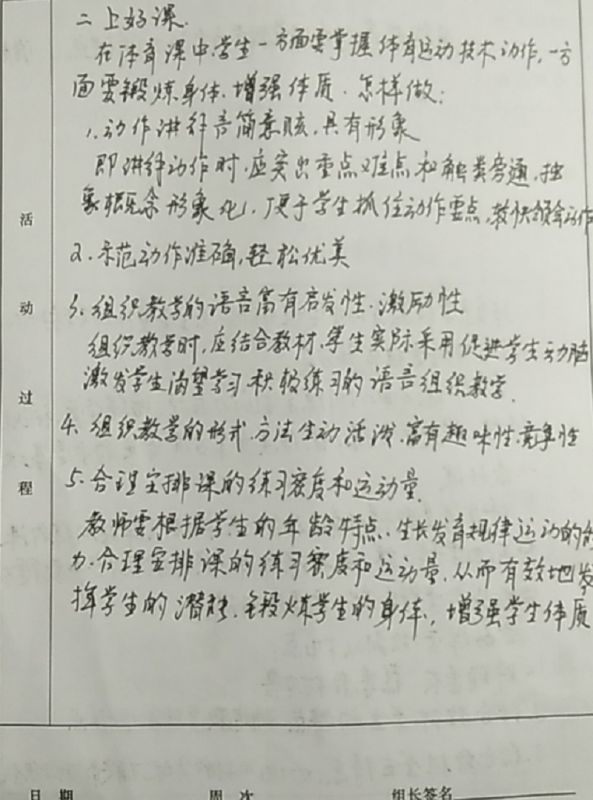 二 上好课.
在体育课中学生一方面要掌握体育运动技术动作,一方
面要锻炼身体.增强体质.怎样做:
1.动作讲解言简意赅,具有形象
即讲解动作时.应突出重点难点和触类旁通,抽
象概念形象化,便于学生抓住动作要点,较快领会动作
2.示范动作准确,轻松优美
3.组织教学的语言富有启发性.激励性
组织教学时,应结合教材.学生实际采用促进学生动脑
激发学生渴望学习积极练习的语言组织教学.
4.组织教学的形式.方法生动活泼.富有趣味性.竞争性
5.合理安排课的练习密度和运动量.
教师要根据学生的年龄特点.生长发育规律运动的能
力.合理安排课的练习密度和运动量.从而有效地发
挥学生的潜能.锻炼学生的身体,增强学生体质
活
动
过
程
日 期 周 次 组长签名